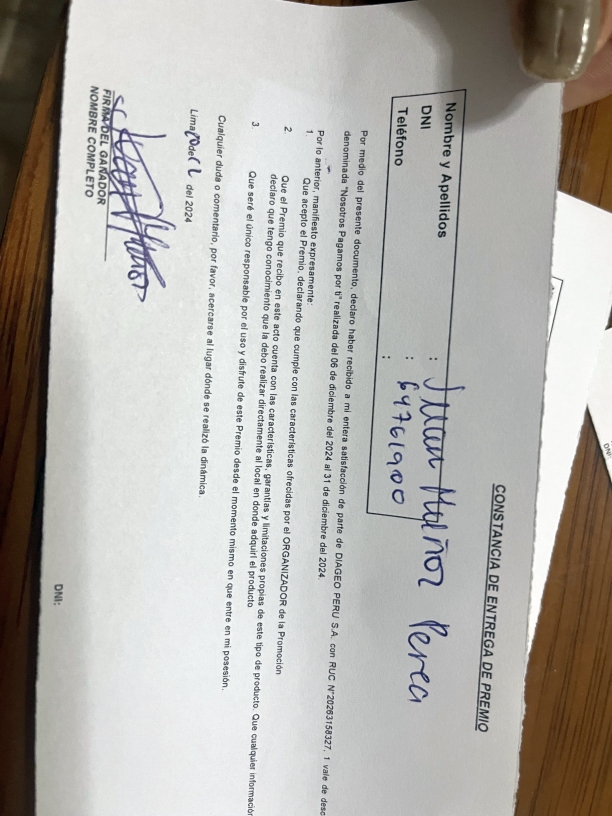 CONSTANCIA DE ENTREGA DE PREMIO
Nombre y Apellidos : Juan Muñoz Perea
DNI : 69761900
Teléfono :
Por medio del presente documento, declaro haber recibido a mi entera satisfacción de parte de DIAGEO PERU S.A. con RUC N°20263158327, 1 vale de desc
denominada "Nosotros Pagamos por ti" realizada del 06 de diciembre del 2024 al 31 de diciembre del 2024.
Por lo anterior, manifiesto expresamente:
1. Que acepto el Premio, declarando que cumple con las características ofrecidas por el ORGANIZADOR de la Promoción
2. Que el Premio que recibo en este acto cuenta con las características, garantías y limitaciones propias de este tipo de producto. Que cualquier información
declaro que tengo conocimiento que la debo realizar directamente al local en donde adquirí el producto
3. Que seré el único responsable por el uso y disfrute de este Premio desde el momento mismo en que entre en mi posesión.
Cualquier duda o comentario, por favor, acercarse al lugar dónde se realizó la dinámica.
Lima 20 de 12 del 2024
Juan Muñoz
FIRMA DEL GANADOR
NOMBRE COMPLETO
DNI:
DNI: